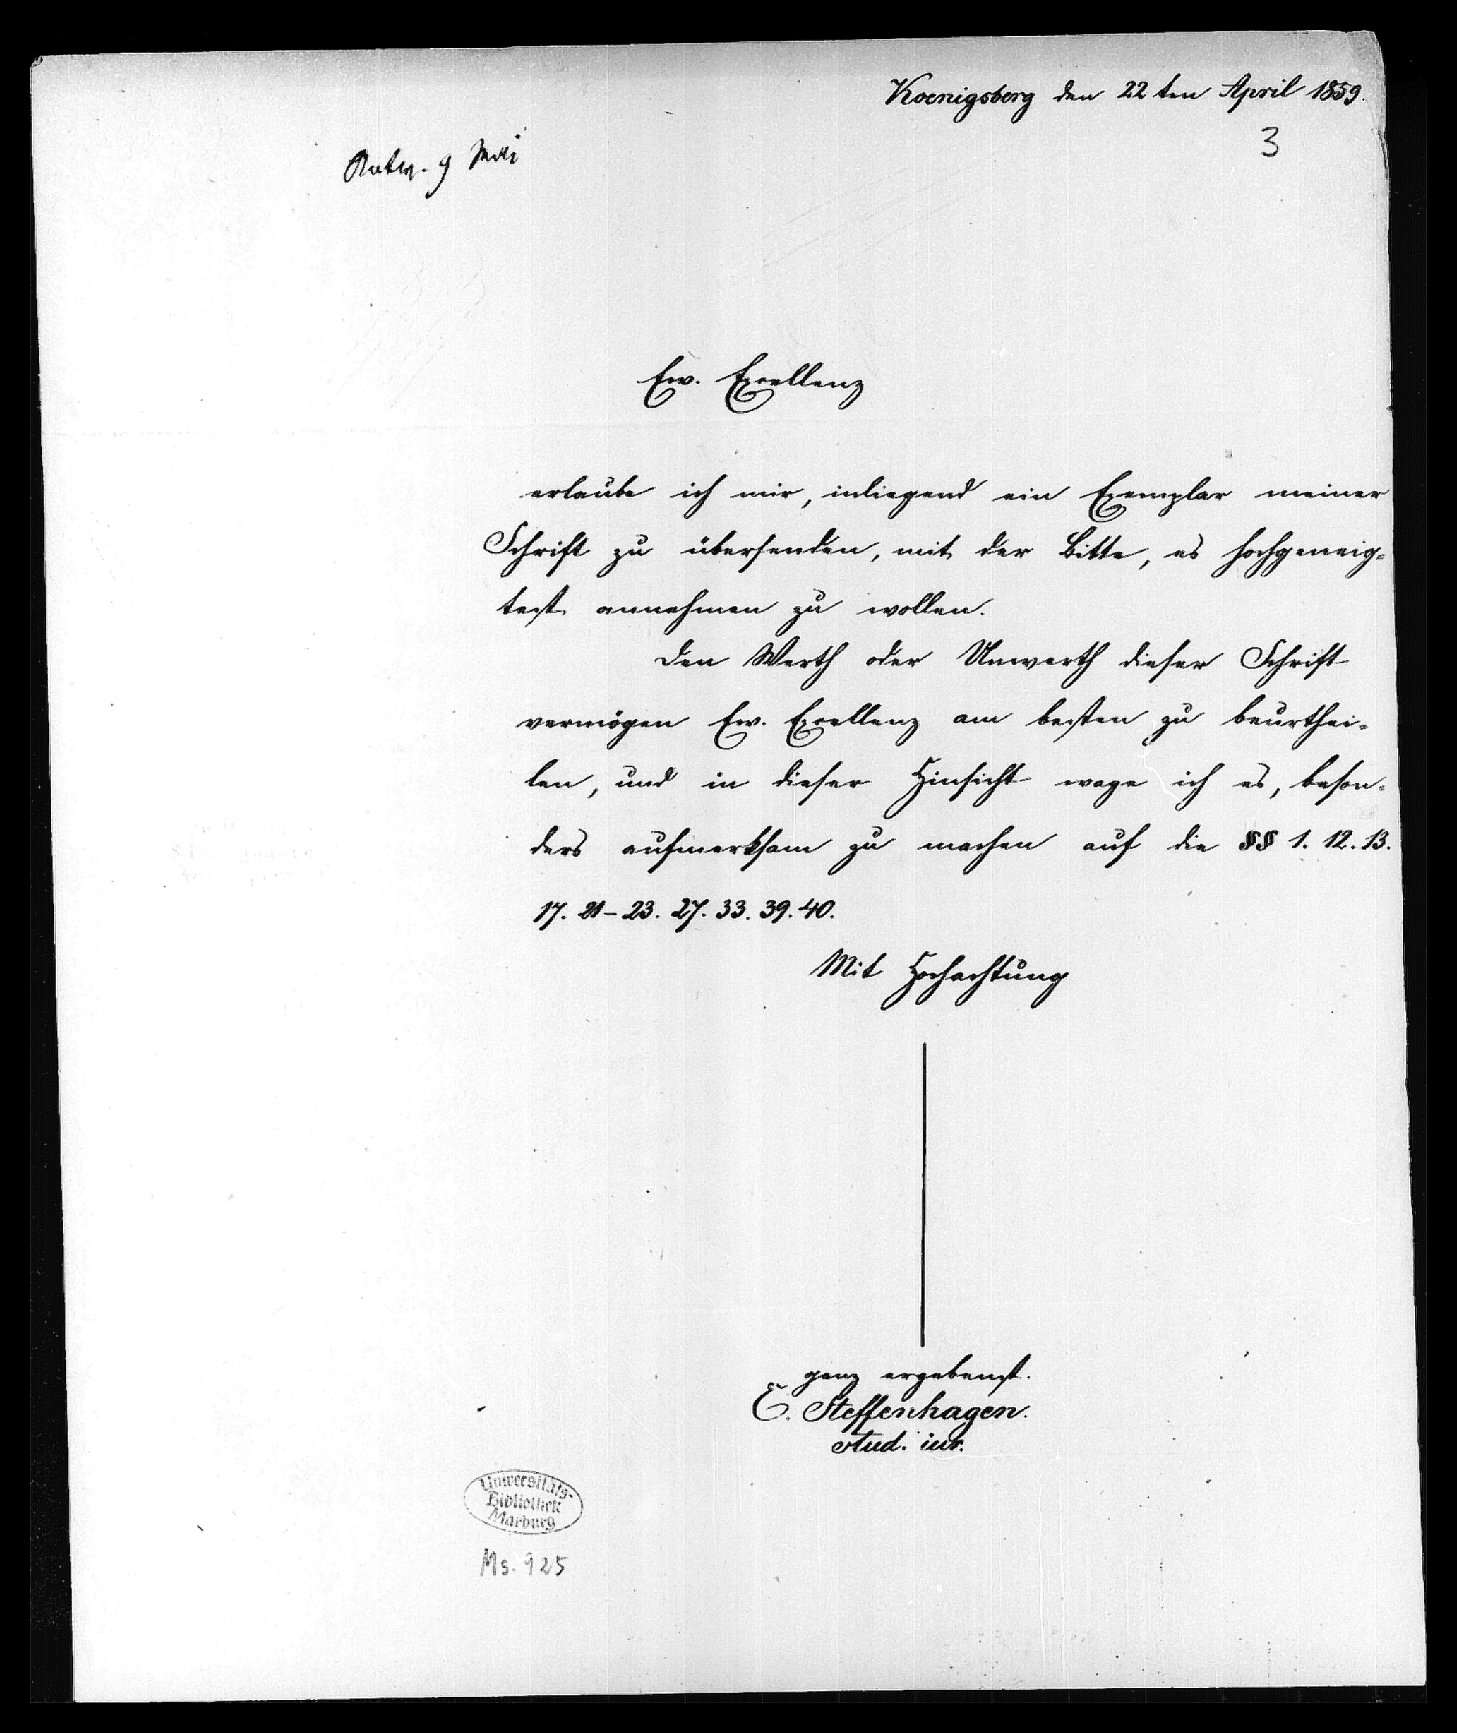 Koenigsberg den 22 ten April 1859.
3
Antw. 9 Mai
Ew. Excellenz
erlaube ich mir, inliegend ein Exemplar meiner
Schrift zu übersenden, mit der Bitte, es hochgeneig-
test annehmen zu wollen.
Den Werth oder Unwerth dieser Schrift
vermögen Ew. Excellenz am besten zu beurthei-
len, und in dieser Hinsicht wage ich es, beson-
ders aufmerksam zu machen auf die §§ 1. 12. 13.
17. 21–23. 27. 33. 39. 40.
Mit Hochachtung
ganz ergebenst.
E. Steffenhagen.
stud. iur.
Universitäts-
Bibliothek
Marburg
Ms. 925